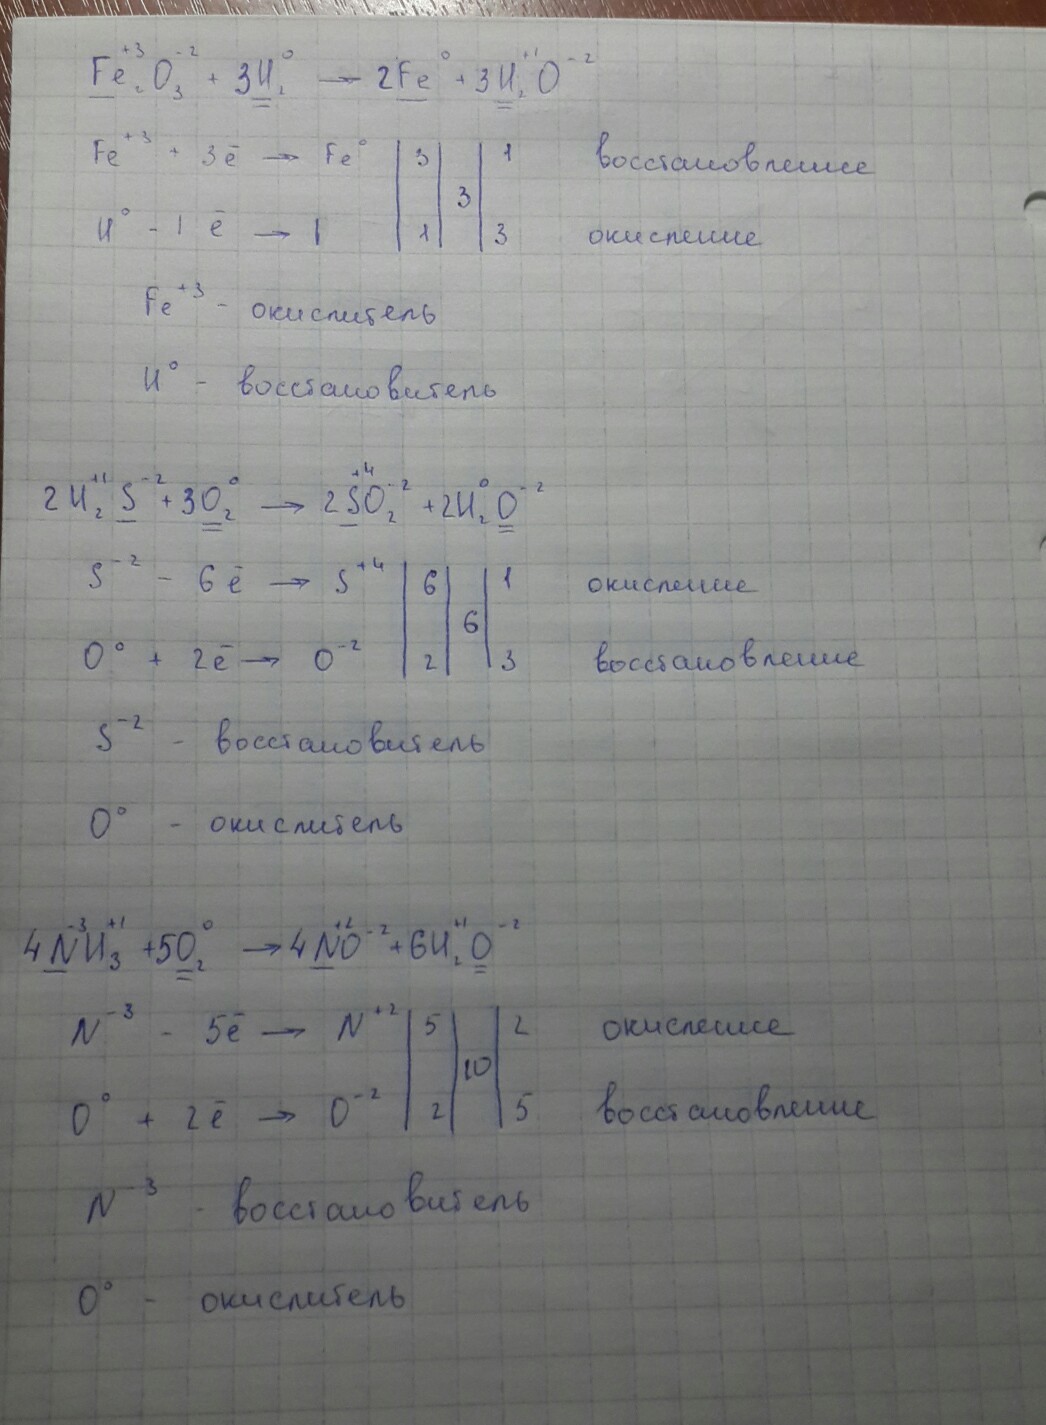 Fe₂⁺³O₃⁻² + 3H₂⁰ → 2Fe⁰ + 3H₂⁺¹O⁻²
Fe⁺³ + 3ē → Fe⁰ | 3 | | 1 восстановление
3
H⁰ - 1 ē → 1 | 1 | | 3 окисление
Fe⁺³ - окислитель
H⁰ - восстановитель
2H₂⁺¹S⁻² + 3O₂⁰ → 2S⁺⁴O₂⁻² + 2H₂⁰O⁻²
S⁻² - 6ē → S⁺⁴ | 6 | | 1 окисление
6
O⁰ + 2ē → O⁻² | 2 | | 3 восстановление
S⁻² - восстановитель
O⁰ - окислитель
4N⁻³H₃⁺¹ + 5O₂⁰ → 4N⁺²O⁻² + 6H₂⁺¹O⁻²
N⁻³ - 5ē → N⁺² | 5 | | 2 окисление
10
O⁰ + 2ē → O⁻² | 2 | | 5 восстановление
N⁻³ - восстановитель
O⁰ - окислитель